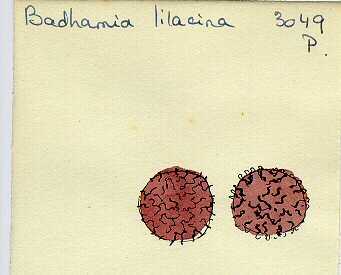 Badhamia lilacina 3049
P.